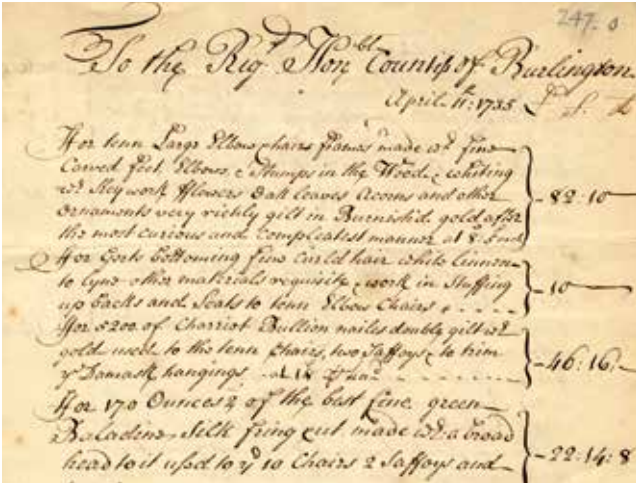 247. 0
To the Rigt. Honbl Countiss of Burlington
April. 11th: 1735 £ S. D
ffor tenn Large Elbow chairs frames made wth. fine
Carved feet. Elbows & Stumps in the Wood & whiting
wth. Keywork fflowers Oak leaves Acorns and other
ornaments very richly gilt in Burnishd. gold after
the most curious and Compleatest manner at 8: 5 each - 82:10
ffor Gorts bottoming fine Curld hair white linnen
to lyne other materials requisite & work in Stuffing
up backs and Seats to tenn Elbow Chairs - 10
ffor 5200 of Charriot Bullion nailes double gilt wth.
gold used to the tenn Chairs, two Saffoys & to trim
ye Damask hangings - 46:16:
ffor 170 Ounces ½ of the best fine green
Baladine Silk fring cut made wth. a broad
head to it used to ye 10 Chairs 2 Saffoys and - 22:14:8